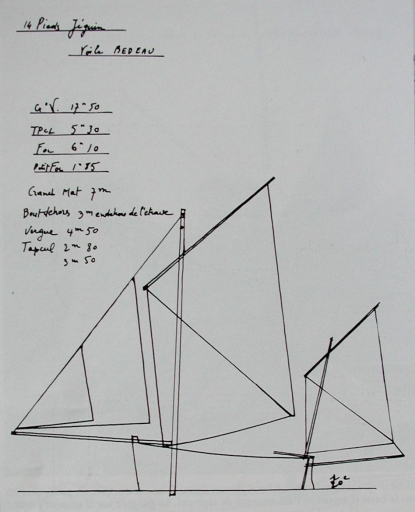 14 Pieds Jéguin
Voile BEDEAU
Gd V. 17m 50
TPCL 5m 30
Foc 6m 10
Petit Foc 1m 85
Grand Mat 7m
Bout dehors 3m en dehors de l'étrave
Vergue 4m 50
Tapcul 2m 80
3m 50